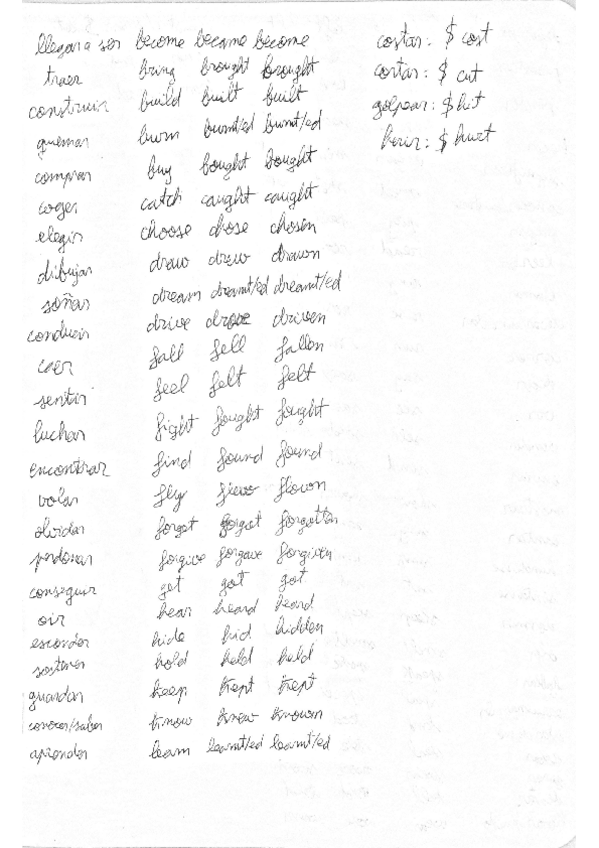 llegar a ser become became become
traer bring brought brought
construir build built built
quemar burn burnt/ed burnt/ed
comprar buy bought bought
coger catch caught caught
elegir choose chose chosen
dibujar draw drew drawn
soñar dream dreamt/ed dreamt/ed
conducir drive drove driven
caer fall fell fallen
sentir feel felt felt
luchar fight fought fought
encontrar find found found
volar fly flew flown
olvidar forget forgot forgotten
perdonar forgive forgave forgiven
conseguir get got got
oir hear heard heard
esconder hide hid hidden
sostener hold held held
guardar keep kept kept
conocer/saber know knew known
aprender learn learnt/ed learnt/ed
costar: $ cost
cortar: $ cut
golpear: $ hit
herir: $ hurt